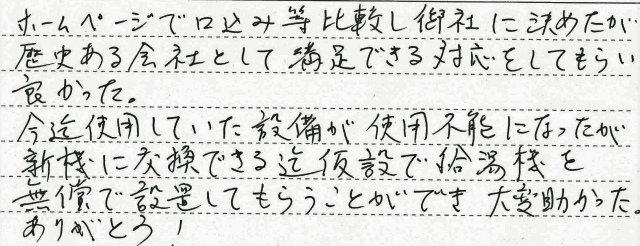 ホームページで口込み等比較し御社に決めたが
歴史ある会社として満足できる対応をしてもらい
良かった。
今迄使用していた設備が使用不能になったが
新機に交換できる迄仮設で給湯機を
無償で設置してもらうことができ大変助かった。
ありがとう!